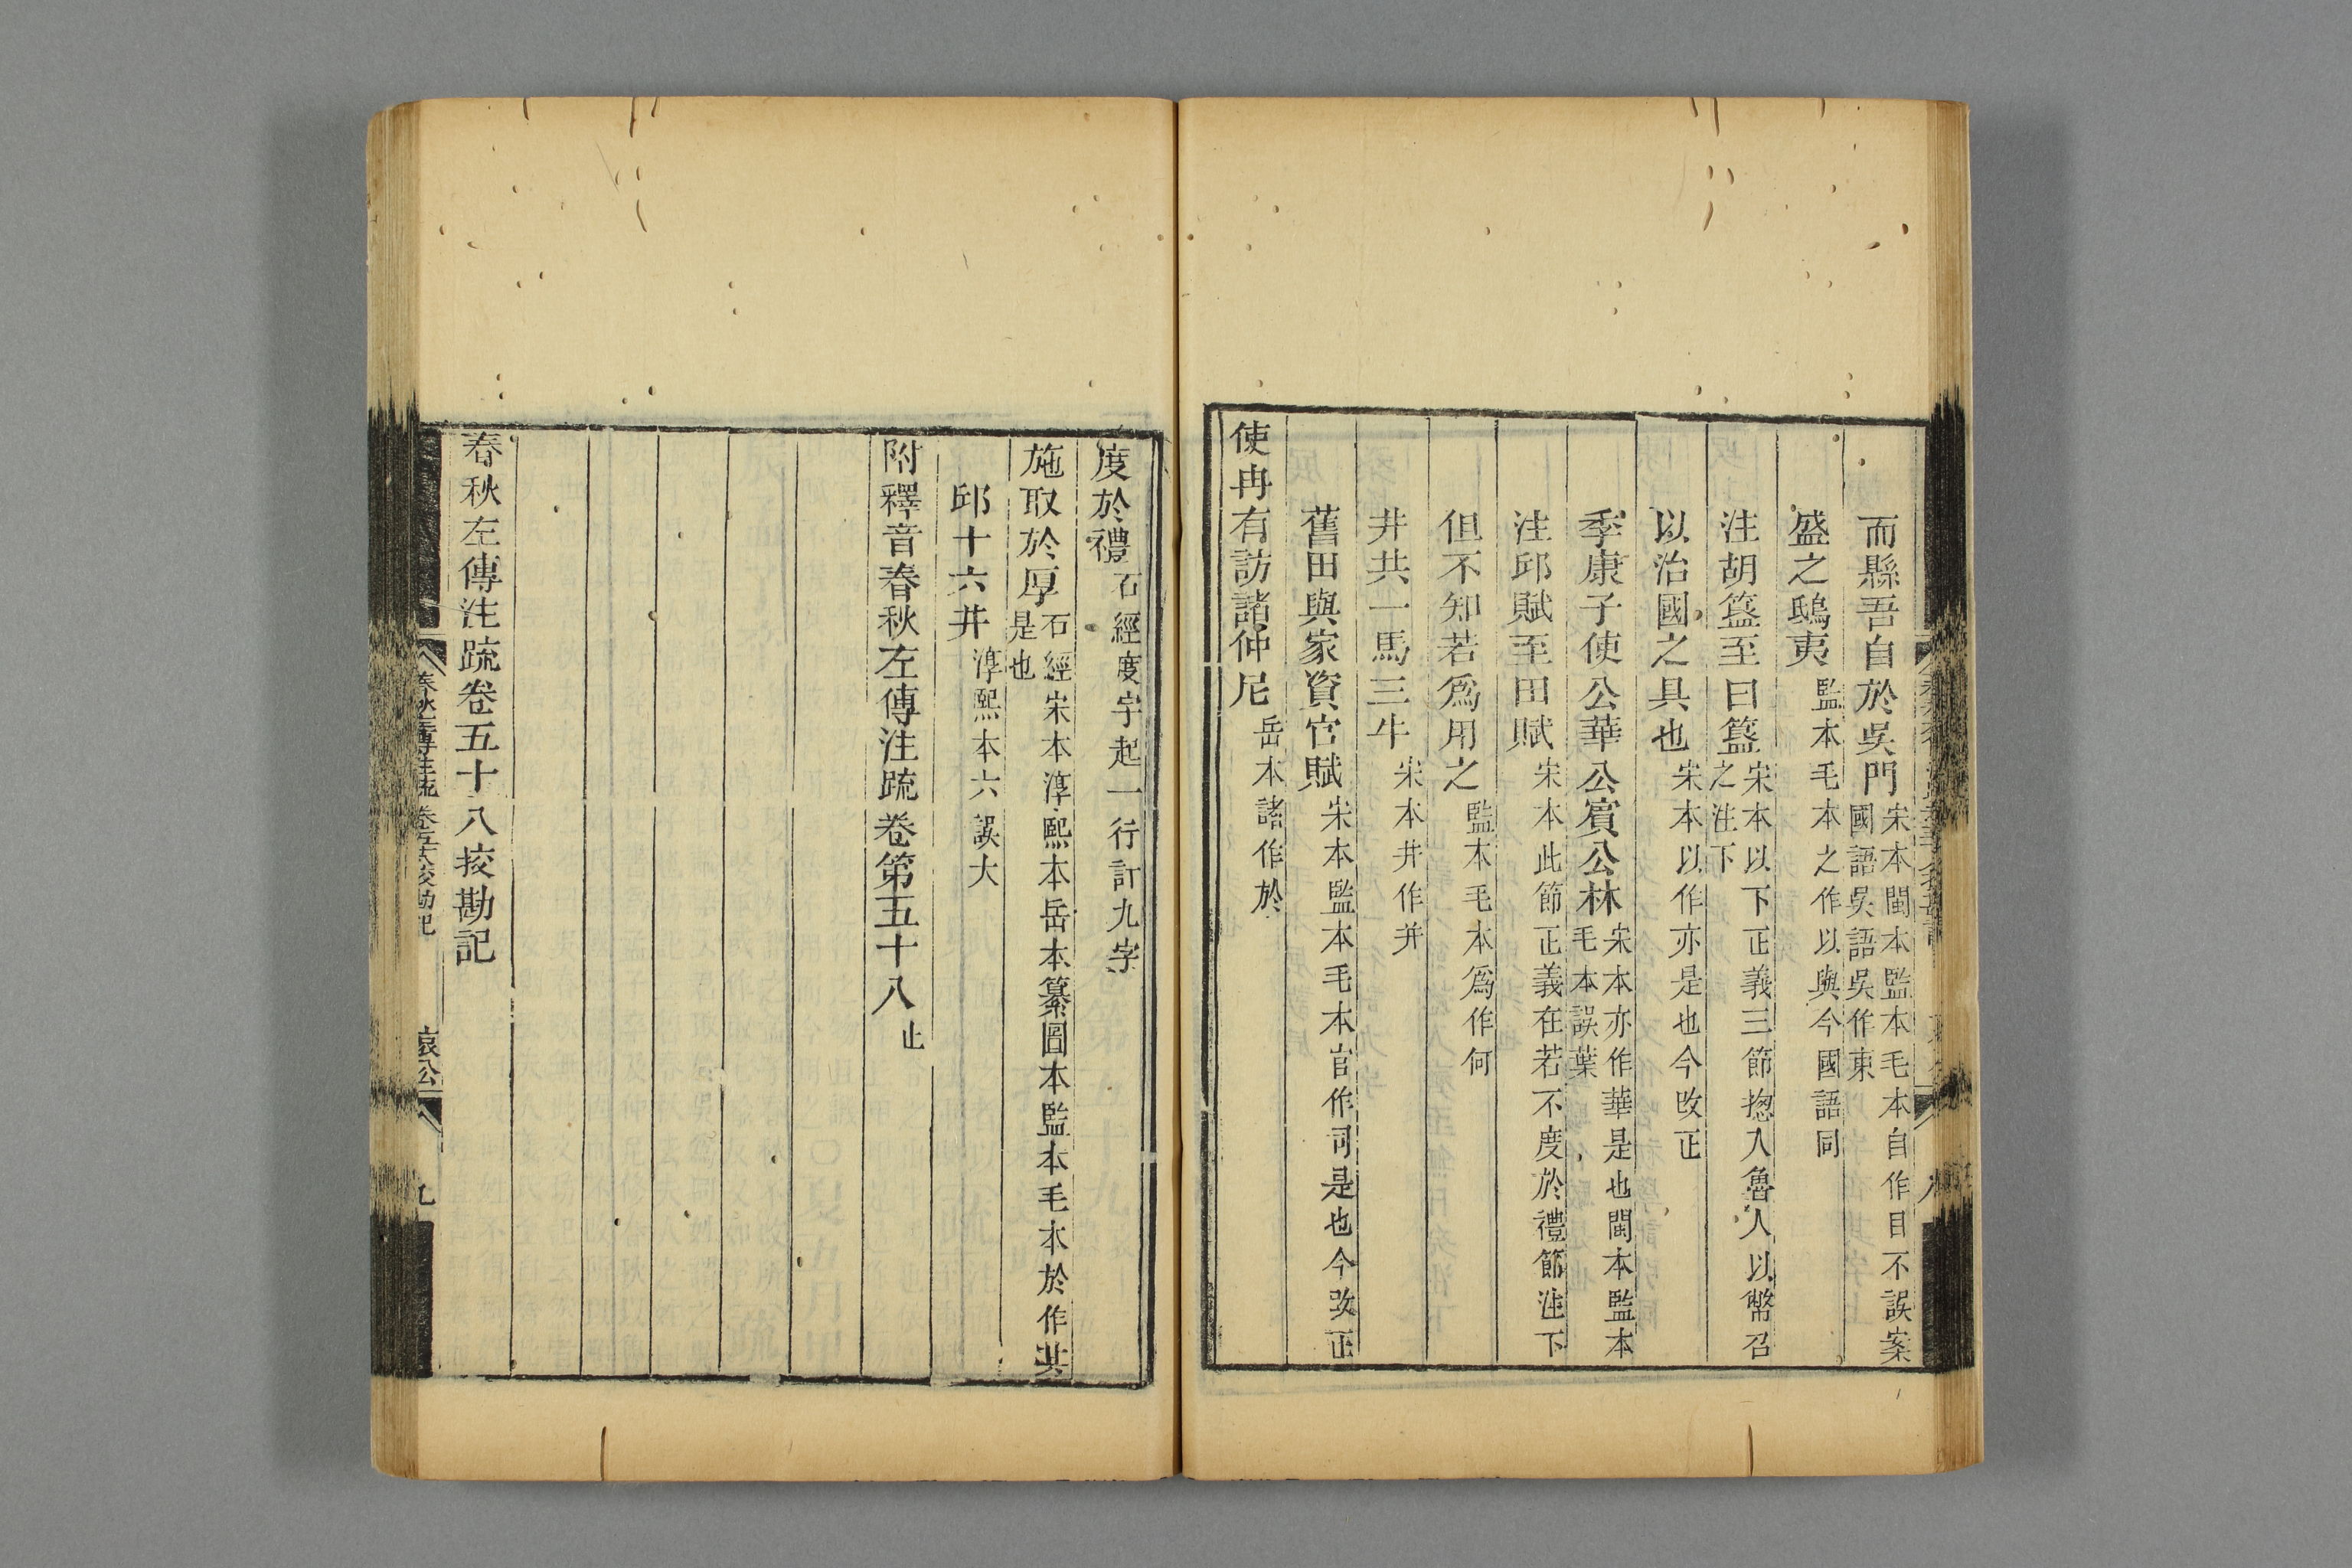 而縣吾自於吳門宋本閩本監本毛本自作目不誤案國語吳語吳作東
盛之鴟夷監本毛本之作以與今國語同
注胡簋至曰簋宋本以下正義三節揔入魯人以幣召之注下
以治國之具也宋本以作亦是也今改正
季康子使公華公賓公林宋本亦作華是也閩本監本毛本誤葉
注邱賦至田賦宋本此節正義在若不度於禮節注下
但不知若爲用之監本毛本爲作何
井共一馬三牛宋本井作并
舊田與家資官賦宋本監本毛本官作司是也今改正
使冉有訪諸仲尼岳本諸作於
度於禮石經度字起一行計九字
施取於厚石經宋本淳熙本岳本纂圖本監本毛本於作其是也
邱十六井淳熙本六誤大
附釋音春秋左傳注疏卷第五十八止
春秋左傳注疏卷五十八挍勘記
哀公
九